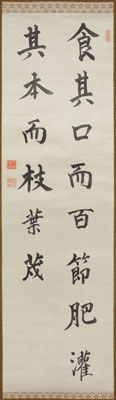 食其口而百節肥灌
其本而枝葉茂